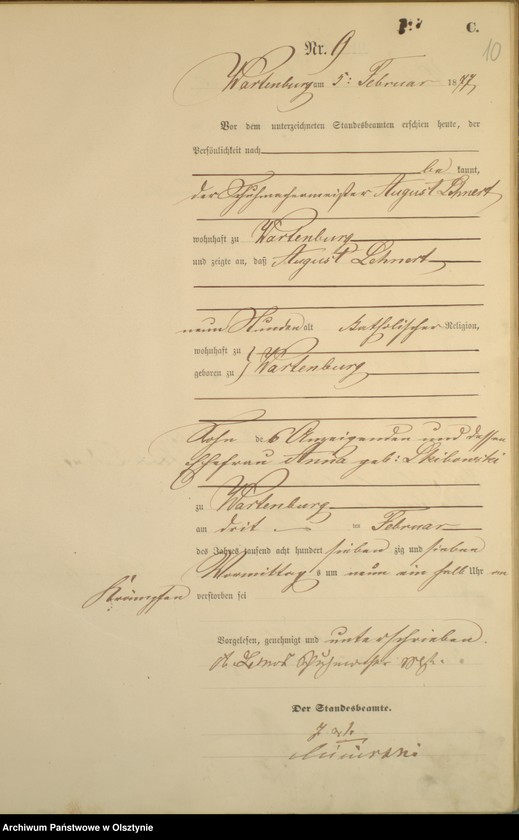 C.
10
Nr. 9
Wartenburg am 5ten Februar 1877,
Vor dem unterzeichneten Standesbeamten erschien heute, der
Persönlichkeit nach
be kannt,
der Schuhmachermeister August Lehnert
wohnhaft zu Wartenburg
und zeigte an, daß August Lehnert
neun Stunden alt katholischer Religion,
wohnhaft zu
geboren zu } Wartenburg
Sohn des Anzeigenden und dessen
Ehefrau Anna geb:
zu Wartenburg
am drit ten Februar
des Jahres tausend acht hundert sieben zig und sieben
Vormittags um neun ein halb Uhr an
Krämpfen verstorben sei
Vorgelesen, genehmigt und unterschrieben.
A. Lehnert
Der Standesbeamte.
Archiwum Państwowe w Olsztynie